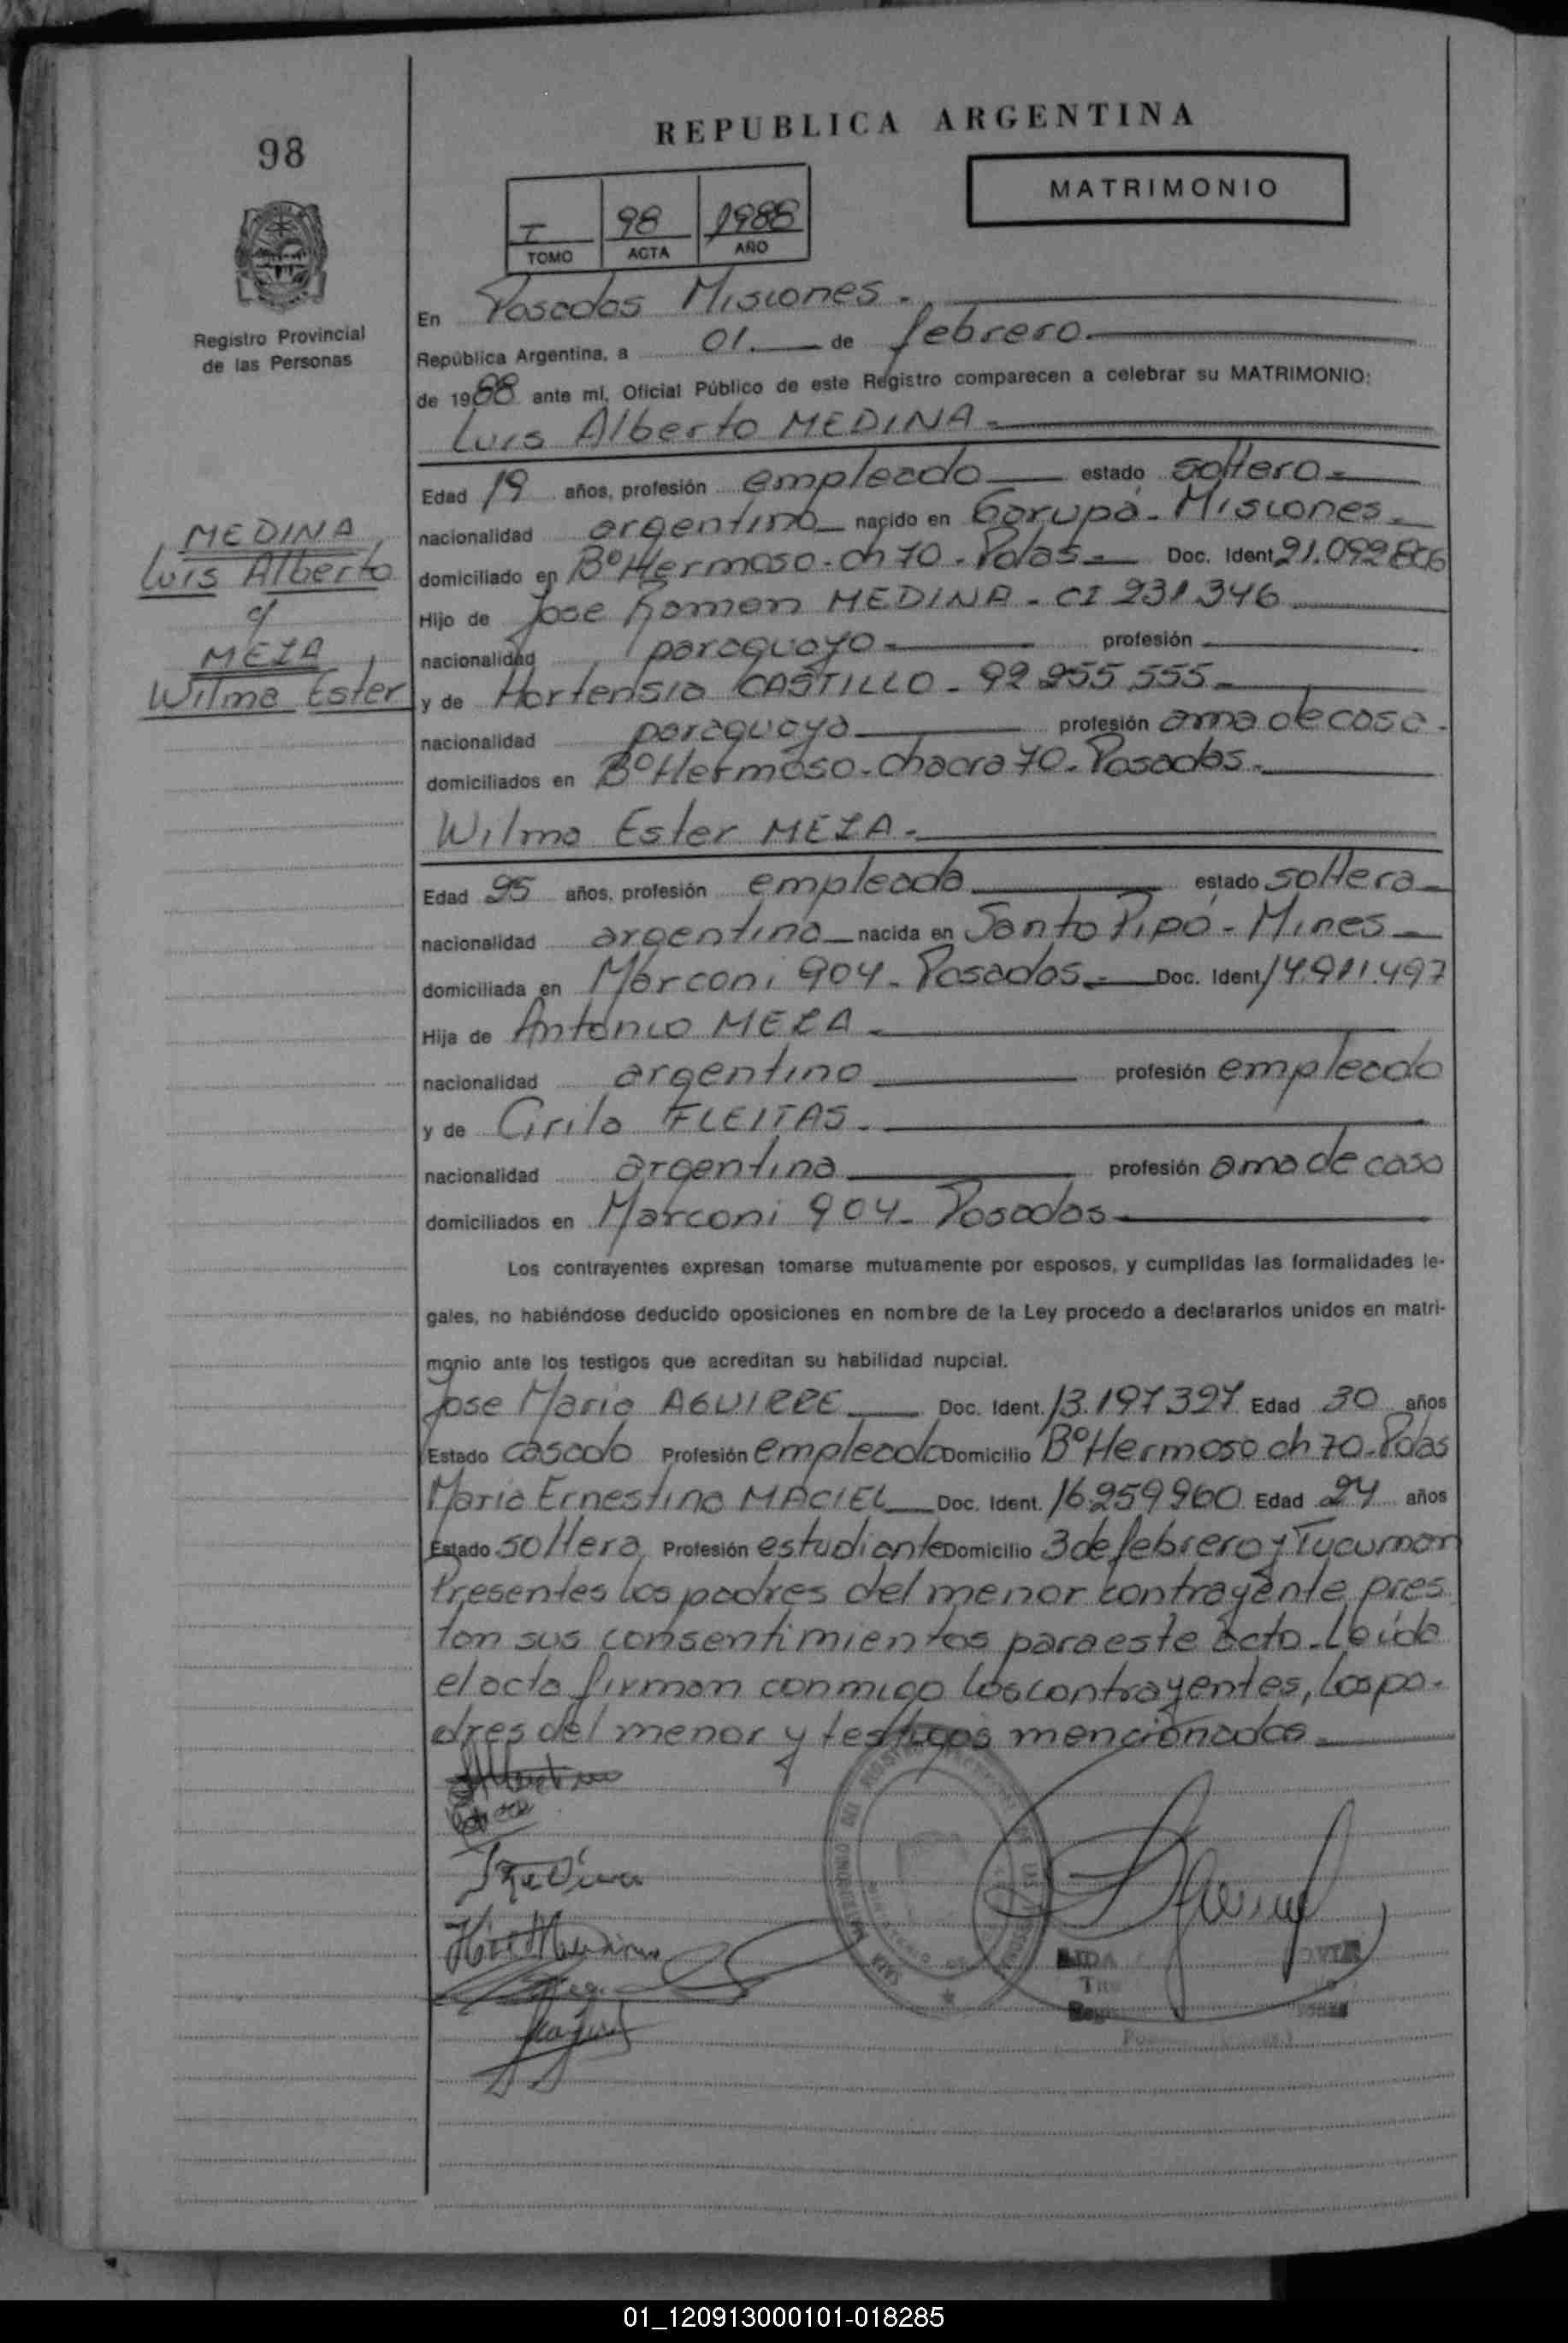 98
REPUBLICA ARGENTINA
MATRIMONIO
I 98 1988
TOMO ACTA AÑO
Registro Provincial
de las Personas
En Posadas Misiones.
República Argentina, a 01. de febrero.
de 1988 ante mí, Oficial Público de este Registro comparecen a celebrar su MATRIMONIO:
Luis Alberto MEDINA.
Edad 19 años, profesión empleado estado soltero
nacionalidad argentino nacido en Garupá. Misiones.
domiciliado en Bº Hermoso. ch 70. Pdas. Doc. Ident. 21.092.806
Hijo de Jose Ramon MEDINA. CI 231.346
nacionalidad paraguayo profesión
y de Hortensia CASTILLO. 92.255.555
nacionalidad paraguaya profesión ama de casa.
domiciliados en Bº Hermoso. chacra 70. Posadas.
MEDINA,
Luis Alberto
c/
MEZA,
Wilma Ester
Wilma Ester MEZA.
Edad 25 años, profesión empleada estado soltera
nacionalidad argentina nacida en Santo Pipó. Mnes
domiciliada en Marconi 904. Posadas. Doc. Ident. 14.911.497
Hija de Antonio MEZA
nacionalidad argentino profesión empleado
y de Cirila FLEITAS.
nacionalidad argentina profesión ama de casa
domiciliados en Marconi 904. Posadas
Los contrayentes expresan tomarse mutuamente por esposos, y cumplidas las formalidades le-
gales, no habiéndose deducido oposiciones en nombre de la Ley procedo a declararlos unidos en matri-
monio ante los testigos que acreditan su habilidad nupcial.
Jose Maria AGUIRRE Doc. Ident. 13.197.327 Edad 30 años
Estado casado Profesión empleado Domicilio Bº Hermoso ch 70. Pdas
Maria Ernestina MACIEL Doc. Ident. 16.259.960 Edad 24 años
Estado soltera Profesión estudiante Domicilio 3 de febrero y Tucuman
Presentes los padres del menor contrayente pres
tan sus consentimientos para este acto. Leida
el acta firman conmigo los contrayentes, los pa-
dres del menor y testigos mencionados
01_120913000101-018285